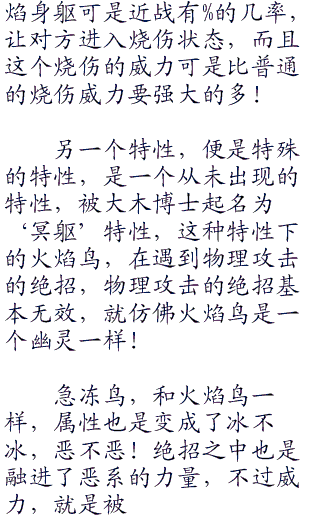 焰身躯可是近战有%的几率，
让对方进入烧伤状态，而且
这个烧伤的威力可是比普通
的烧伤威力要强大的多！
另一个特性，便是特殊
的特性，是一个从未出现的
特性，被大木博士起名为
‘冥躯’特性，这种特性下
的火焰鸟，在遇到物理攻击
的绝招，物理攻击的绝招基
本无效，就仿佛火焰鸟是一
个幽灵一样！
急冻鸟，和火焰鸟一
样，属性也是变成了冰不
冰，恶不恶！绝招之中也是
融进了恶系的力量，不过威
力，就是被